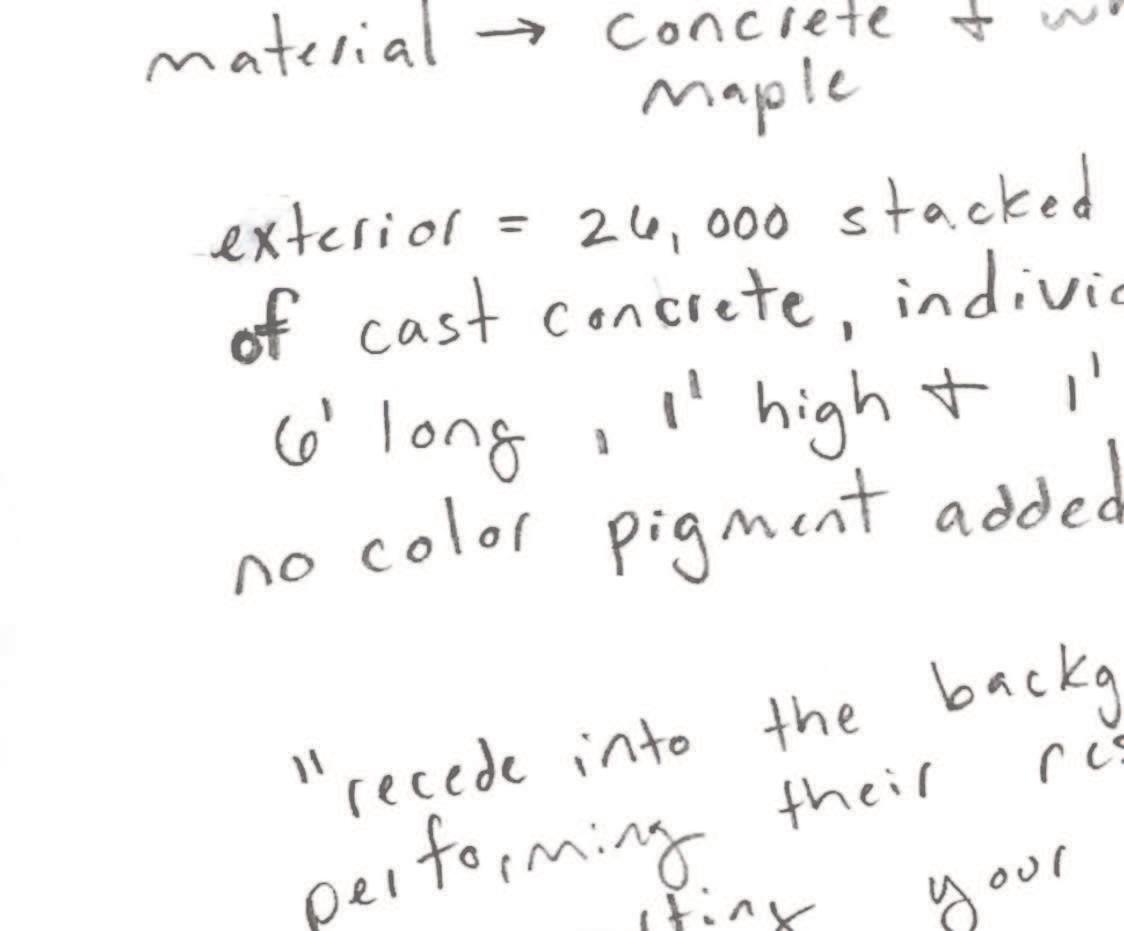 material → concrete +
maple
exterior = 26,000 stacked
of cast concrete, indivi
6' long, 1' high + 1'
no color pigment added
"recede into the backg
performing their res
your